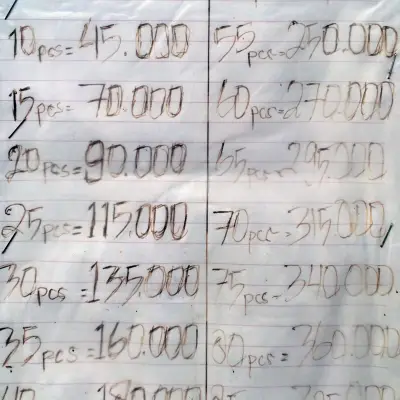 10pcs=45.000
15pcs=70.000
20pcs=90.000
25pcs=115.000
30pcs=135.000
35pcs=160.000
55pcs=250.000
60pcs=270.000
65pcs=295.000
70pcs=315.000
75pcs=340.000
80pcs=360.000